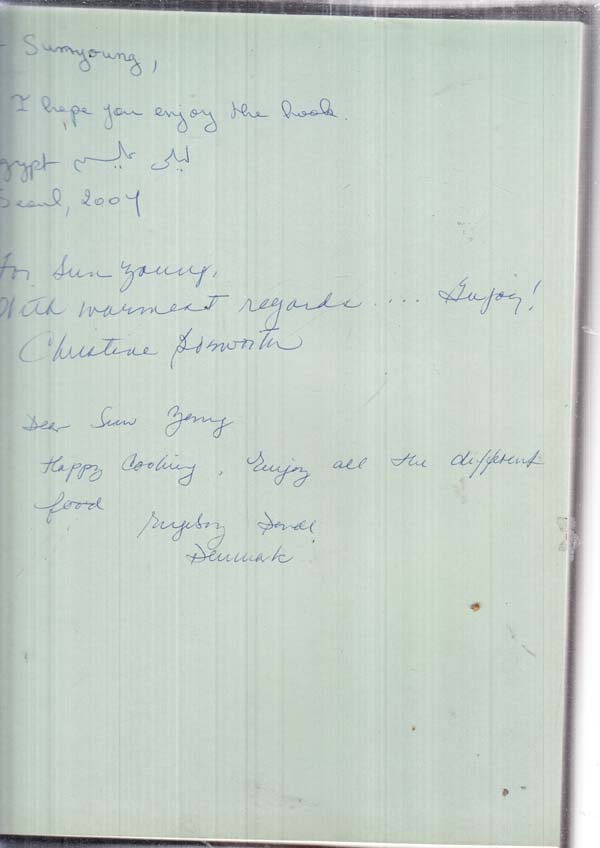 Sunyoung,
I hope you enjoy the book.
gypt ليلى
Seoul, 2004
For Sun Young,
With warmest regards .... Enjoy!
Christine
Dear Sun Young
Happy Cooking, Enjoy all the different
food
Denmark